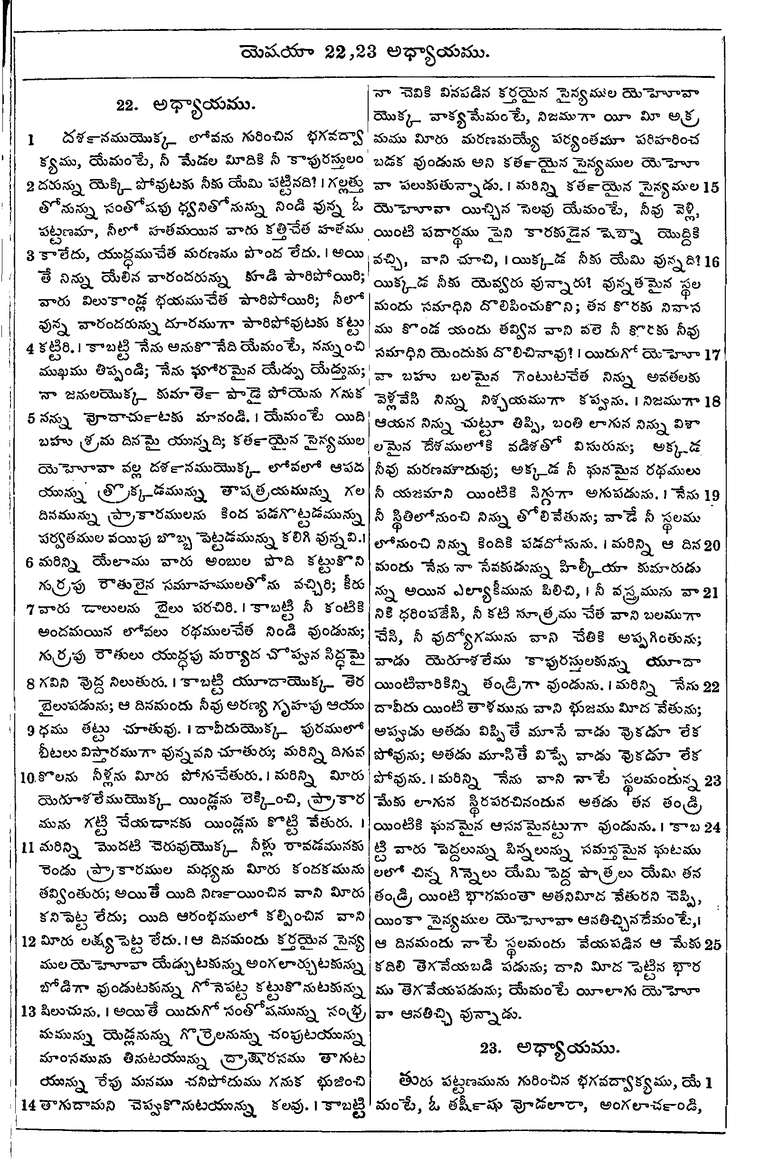 యెషయా 22,23 అధ్యాయము.
22. అధ్యాయము.
1 దర్శనముయొక్క లోవను గురించిన భగవద్వా
క్యము, యేమంటే, నీ మేడల మీదికి నీ కాపురస్తులం
2 దరున్ను యెక్కి పోవుటకు నీకు యేమి పట్టినది? । గల్లత్తు
తోనున్ను సంతోషపు ధ్వనితోనున్ను నిండి వున్న ఓ
పట్టణమా, నీలో హతమయిన వారు కత్తిచేత హతము
3 కాలేదు, యుద్ధముచేత మరణము పొంద లేదు. । అయి
తే నిన్ను యేలిన వారందరున్ను కూడి పారిపోయిరి;
వారు విలుకాండ్ల భయముచేత పారిపోయిరి; నీలో
వున్న వారందరున్ను దూరముగా పారిపోవుటకు కట్టు
4 కట్టిరి. । కాబట్టి నేను అనుకొనేది యేమంటే, నన్నుంచి
ముఖము తిప్పండి; నేను ఘోరమైన యేడ్పు యేడ్తును;
నా జనులయొక్క కుమార్తె పాడై పోయెను గనుక
5 నన్ను వోదార్చుటకు మానండి. । యేమంటే యిది
బహు శ్రమ దినమై యున్నది; కర్తయైన సైన్యముల
యెహోవా వల్ల దర్శనముయొక్క లోవలో ఆపద
యున్ను త్రొక్కడమున్ను తాపత్రయమున్ను గల
దినమున్ను ప్రాకారములను కింద పడగొట్టడమున్ను
పర్వతముల వయిపు బొబ్బ పెట్టడమున్ను కలిగి వున్నవి. ।
6 మరిన్ని యేలాము వారు అంబుల పొది కట్టుకొని
గుర్రపు రౌతులైన సమూహములతోను వచ్చిరి; కీరు
7 వారు డాలులను బైలు పరచిరి. । కాబట్టి నీ కంటికి
అందమయిన లోవలు రథములచేత నిండి వుండును;
గుర్రపు రౌతులు యుద్ధపు మర్యాద చొప్పున సిద్ధమై
8 గవిని వొద్ద నిలుతురు. । కాబట్టి యూదాయొక్క తెర
బైలుపడును; ఆ దినమందు నీవు అరణ్య గృహపు ఆయు
9 ధము తట్టు చూతువు. । దావీదుయొక్క పురములో
బీటలు విస్తారముగా వున్నవని చూతురు; మరిన్ని దిగువ
10 కొలను నీళ్లను మీరు పోగుచేతురు. । మరిన్ని మీరు
యెరూశలేముయొక్క యిండ్లను లెక్కించి, ప్రాకార
మును గట్టి చేయడానకు యిండ్లను కొట్టి వేతురు. ।
11 మరిన్ని మొదటి చెరువుయొక్క నీళ్లు రావడమునకు
రెండు ప్రాకారముల మధ్యను మీరు కందకమును
తవ్వింతురు; అయితే యిది నిర్ణాయించిన వాని మీరు
కనిపెట్ట లేదు; యిది ఆరంభములో కల్పించిన వాని
12 మీరు లక్ష్యపెట్ట లేదు. । ఆ దినమందు కర్తయైన సైన్య
ముల యెహోవా యేడ్చుటకున్ను అంగలార్చుటకున్ను
బోడిగా వుండుటకున్ను గోనెపట్ట కట్టుకొనుటకున్ను
13 పిలుచును. । అయితే యిదుగో సంతోషమున్ను సంభ్ర
మమున్ను యెడ్లనున్ను గొర్రెలనున్ను చంపుటయున్ను
మాంసమును తినుటయున్ను ద్రాక్షారసము తాగుట
యున్ను రేపు మనము చనిపోదుము గనుక భుజించి
14 తాగుదామని చెప్పుకొనుటయున్ను కలవు. । కాబట్టి
నా చెవికి వినపడిన కర్తయైన సైన్యముల యెహోవా
యొక్క వాక్యమేమంటే, నిజముగా యీ మీ అక్ర
మము మీరు మరణమయ్యే పర్యంతమూ పరిహరించ
బడక వుండును అని కర్తయైన సైన్యముల యెహో
వా పలుకుతున్నాడు. । మరిన్ని కర్తయైన సైన్యముల 15
యెహోవా యిచ్చిన సెలవు యేమంటే, నీవు వెళ్లి,
యింటి పదార్థము పైని కారకుడైన షెబ్నా యొద్దికి
వచ్చి, వాని చూచి, । యిక్కడ నీకు యేమి వున్నది? 16
యిక్కడ నీకు యెవ్వరు వున్నారు? వున్నతమైన స్థల
మందు సమాధిని దొలిపించుకొని; తన కొరకు నివాస
ము కొండ యందు తవ్విన వాని వలె నీ కొరకు నీవు
సమాధిని యెందుకు దొలిచినావు? । యిదుగో యెహో 17
వా బహు బలమైన గెంటుటచేత నిన్ను అవతలకు
వెళ్లవేసి నిన్ను నిశ్చయముగా కప్పును. । నిజముగా 18
ఆయన నిన్ను చుట్టూ తిప్పి, బంతి లాగున నిన్ను విశా
లమైన దేశములోకి వడిశతో విసురును; అక్కడ
నీవు మరణమాదువు; అక్కడ నీ ఘనమైన రథములు
నీ యజమాని యింటికి సిగ్గుగా అగుపడును. । నేను 19
నీ స్థితిలోనుంచి నిన్ను తోలివేతును; వాడే నీ స్థలము
లోనుంచి నిన్ను కిందికి పడదోసును. । మరిన్ని ఆ దిన 20
మందు నేను నా సేవకుడున్ను హిల్కీయా కుమారుడు
న్ను అయిన ఎల్యాకీమును పిలిచి, । నీ వస్త్రమును వా 21
నికి ధరింపజేసి, నీ కటి సూత్రము చేత వాని బలముగా
చేసి, నీ వుద్యోగమును వాని చేతికి అప్పగింతును;
వాడు యెరూశలేము కాపురస్తులకున్ను యూదా
యింటివారికిన్ని తండ్రిగా వుండును. । మరిన్ని నేను 22
దావీదు యింటి తాళమును వాని భుజము మీద వేతును;
అప్పుడు అతడు విప్పితే మూసే వాడు వొకడూ లేక
పోవును; అతడు మూసితే విప్పే వాడు వొకడూ లేక
పోవును. । మరిన్ని నేను వాని నాటే స్థలమందున్న 23
మేకు లాగున స్థిరపరచినందున అతడు తన తండ్రి
యింటికి ఘనమైన ఆసనమైనట్టుగా వుండును. । కాబ 24
ట్టి వారు పెద్దలున్ను పిన్నలున్ను సమస్తమైన ఘటము
లలో చిన్న గిన్నెలు యేమి పెద్ద పాత్రలు యేమి తన
తండ్రి యింటి భారమంతా అతనిమీద వేతురని చెప్పి,
యింకా సైన్యముల యెహోవా ఆనతిచ్చినదేమంటే, ।
ఆ దినమందు నాటే స్థలమందు వేయపడిన ఆ మేకు 25
కదిలి తెగవేయబడి పడును; దాని మీద పెట్టిన భార
ము తెగవేయపడును; యేమంటే యీలాగు యెహో
వా ఆనతిచ్చి వున్నాడు.
23. అధ్యాయము.
తూరు పట్టణమును గురించిన భగవద్వాక్యము, యే 1
మంటే, ఓ తర్షీషు వోడలారా, అంగలార్చండి,